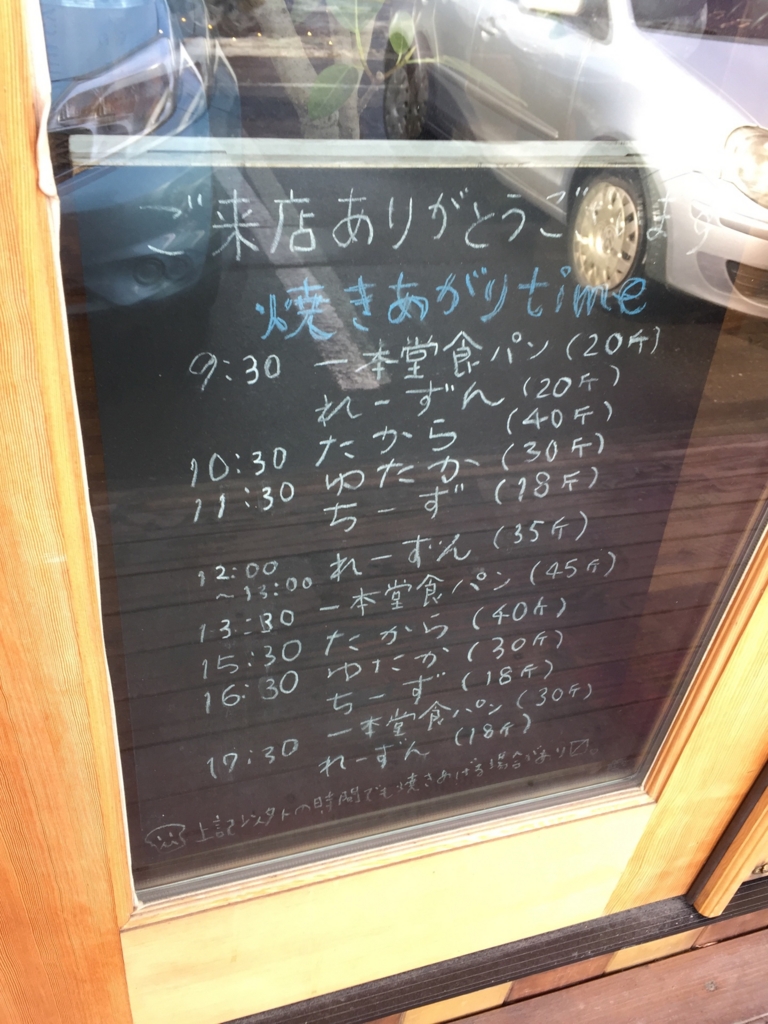 ご来店ありがとうございます
焼きあがりtime
9:30 一本堂食パン (20ケ)
れーずん (20ケ)
10:30 たから (40ケ)
11:30 ゆたか (30ケ)
ちーず (18ケ)
12:00 れーずん (35ケ)
~13:00
13:30 一本堂食パン (45ケ)
15:30 たから (40ケ)
16:30 ゆたか (30ケ)
ちーず (18ケ)
17:30 一本堂食パン (30ケ)
れーずん (18ケ)
上記 の時間でも焼きあげる場合が